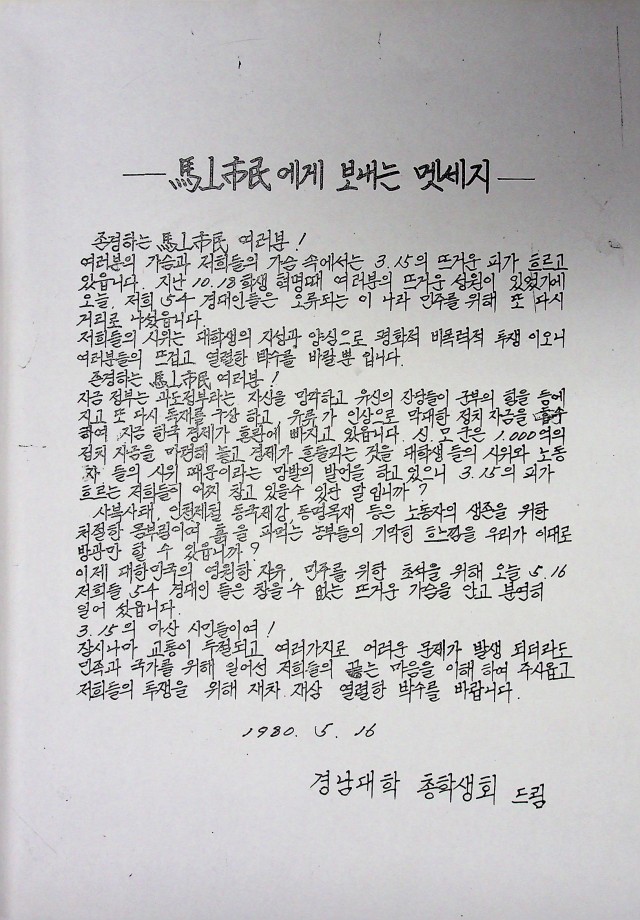 — 馬山市民에게 보내는 멧세지 —
존경하는 馬山市民 여러분!
여러분의 가슴과 저희들의 가슴 속에서는 3.15의 뜨거운 피가 흐르고
있읍니다. 지난 10.18 학생 혁명때 여러분의 뜨거운 성원이 있었기에
오늘, 저희 54 경대인들은 오류되는 이 나라 민주를 위해 또 다시
거리로 나섰읍니다
저희들의 시위는 대학생의 지성과 양심으로 평화적 비폭력적 투쟁 이오니
여러분들의 뜨겁고 열렬한 박수를 바랄뿐 입니다.
존경하는 馬山市民 여러분!
지금 정부는 과도정부라는 자신을 망각하고 유신의 잔당들이 군부의 힘을 등에
지고 또 다시 독재를 구상 하고, 유류가 인상으로 막대한 정치 자금을
하여 지금 한국 경제가 혼란에 빠지고 있읍니다. 신, 모군은 1.000억의
정치 자금을 마련해 놓고 경제가 흔들리는 것을 대학생 들의 시위와 노동
자 들의 시위 때문이라는 망발의 발언을 하고 있으니 3.15의 피가
흐르는 저희들이 어찌 참고 있을수 있단 말입니까?
사북사태, 인천제철, 동국제강, 동명목재 등은 노동자의 생존을 위한
처절한 몸부림이며, 흙을 파먹는 농부들의 기막힌 한숨을 우리가 이대로
방관만 할 수 있읍니까?
이제 대한민족의 영원한 자유, 민주를 위한 초석을 위해 오늘 5.16
저희들 54 경대인 들은 참을 수 없는 뜨거운 가슴을 안고 분연히
일어 섰읍니다.
3.15의 마산 시민들이여!
잠시나마 교통이 두절되고 여러가지로 어려운 문제가 발생 되더라도
민족과 국가를 위해 일어선 저희들의 끓는 마음을 이해 하여 주시옵고
저희들의 투쟁을 위해 재차 재삼 열렬한 박수를 바랍니다.
1980. 5. 16
경남대학 총학생회 드림